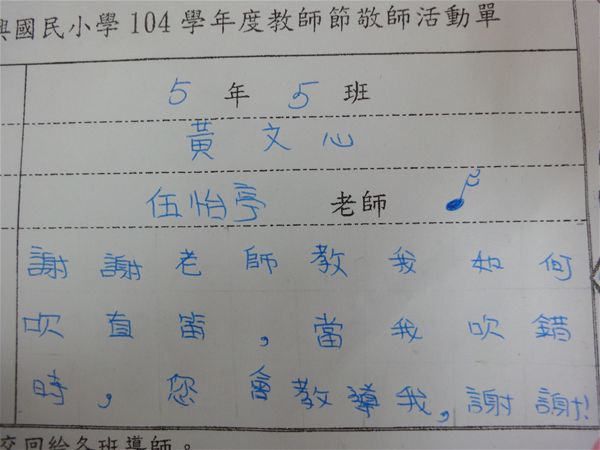 興國民小學104學年度教師節敬師活動單
5 年 5 班
黃文心
伍怡亭 老師
謝謝老師教我如何
吹直笛,當我吹錯
時,您會教導我,謝謝!
交回給各班導師。